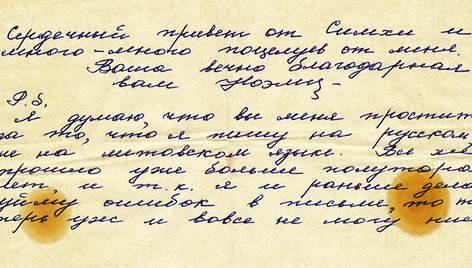 Сердечный привет от Симхи и
много-много поцелуев от меня.
Ваша вечно благодарная
вам Ноэми -
P.S.
Я думаю, что вы меня простит
за то, что я пишу на русском
не на литовском языке. Все хев
прошло уже больше полутора
лет, и т.к. я и раньше дела
уйму ошибок в письме, то т
перь уже и вовсе не могу пис